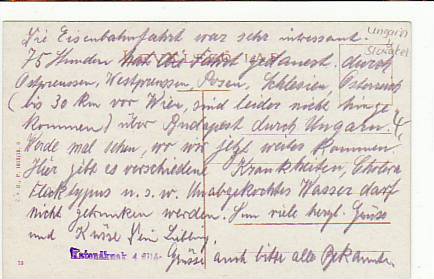 Die Eisenbahnfahrt war sehr intressant.
75 Stunden hat die Fahrt gedauert. durch
Ostpreussen, Westpreussen, Posen, Schlesien, Österreich
(bis 30 km vor Wien, sind leider nicht hinge
kommen) über Budapest durch Ungarn.
Werde mal sehen, wo wir jetzt weiter kommen.
Hier gibt es verschiedene Krankheiten, Cholera
Flecktypus u. s. w. Unabgekochtes Wasser darf
nicht getrunken werden. Nun viele herzl. Grüsse
und Küsse Dein Liebling.
Grüsse auch bitte alle Bekannten.
Ungarn